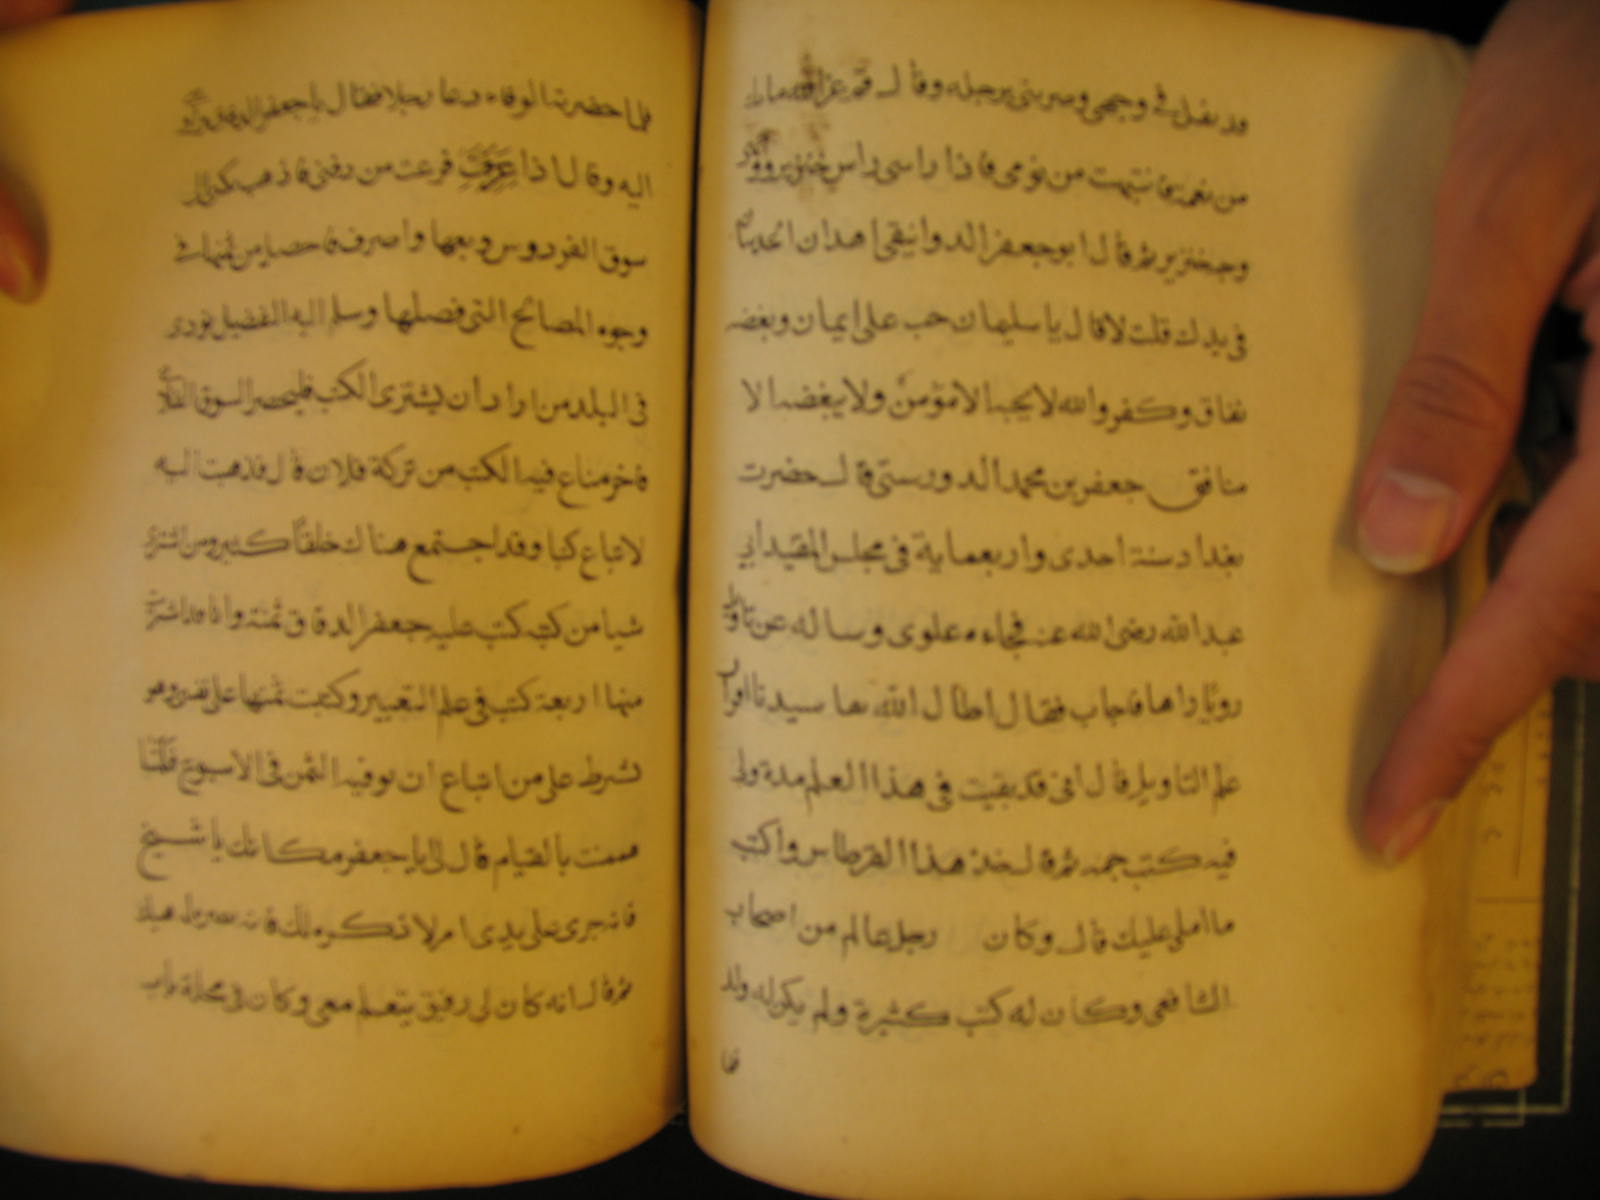 في وجهي وضربني برجله وقال قد غير الله ما بك
من نعمة فانتبهت من نومي فاذا راسي راس خنزير
وجه خنزير ثم قال ابو جعفر الدوانيقي اهذان الحديثان
في يدك قلت لا قال يا سليمان حب علي ايمان وبغضه
نفاق وكفر والله لا يحبه الا مؤمن ولا يبغضه الا
منافق جعفر بن محمد الدوريستي قال حضرت
بغداد سنة احدى واربعماية في مجلس المفيد ابي
عبد الله رضي الله عنه فجاءه علوي وساله عن تاويل
رويا راها فاجاب فقال اطال الله بقا سيدنا
علم التاويل قال اني قد بقيت في هذا العلم مدة ولي
فيه كتب جمه ثم قال خذ هذا القرطاس واكتب
ما املي عليك قال وكان رجل عالم من اصحاب
الشافعي وكان له كتب كثيرة ولم يكن له ولد
فلما
فلما حضرته الوفاه دعا رجلا فقال له يا جعفر الدقاق
اليه وقال اذا فرغت من دفني فاذهب بكتبي الى
سوق الفردوس وبعها واصرف ما حصل من ثمنها في
وجوه المصالح التي فصلها وسلم اليه التفصيل نودي
في البلد من اراد ان يشتري الكتب فليحضر السوق الفلاني
فانه يباع فيه الكتب من تركة فلان قال فذهبت اليه
لابتاع كتبا وقد اجتمع هناك خلقا كثير ومن اشترى
شيا من كتبه كتب عليه جعفر الدقاق ثمنه وانا قد اشتريت
منها اربعة كتب في علم التعبير وكتبت ثمنها على نفسي وهو
يشرط على من ابتاع ان يوفيه الثمن في الاسبوع فلما
هممت بالقيام قال لي يا جعفر مكانك يا شيخ
فانه جرى على يدي امر لاذكره لك فانه نصرة لمذهبك
ثم قال انه كان لي رفيق يتعلم معي وكان في محلة باب